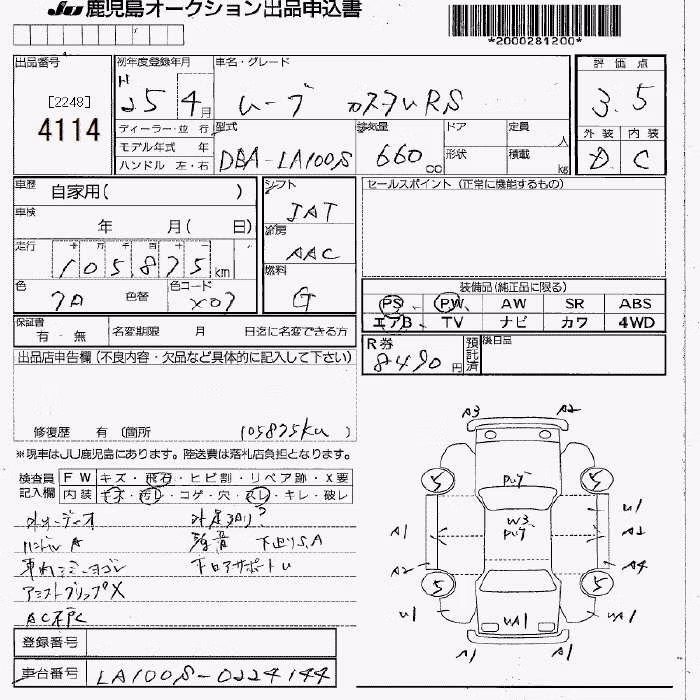 JU 鹿児島オークション出品申込書
*2000281200*
出品番号
[2248]
4114
初年度登録年月
H
25 4月
車名・グレード
ムーブ カスタムRS
評価点
3.5
外装 内装
D C
ディーラー・並行
モデル年式 年
ハンドル 左・右
型式
DBA-LA100S
排気量
660 cc
ドア
形状
定員
人
積載
kg
車歴
自家用( )
車検
年 月( 日)
走行
十 万 千 百 十
105875 km
色
色替
色コード
X07
シフト
IAT
冷房
AAC
燃料
G
セールスポイント (正常に機能するもの)
装備品(純正品に限る)
PS PW AW SR ABS
エアB TV ナビ カワ 4WD
保証書
有・無
名変期限 月 日迄に名変できる方
R券
8490円
預託済
後日品
出品店申告欄(不良内容・欠品など具体的に記入して下さい)
修復歴 有 (箇所 105875km )
※現車はJU鹿児島にあります。陸送費は落札店負担となります。
検査員記入欄
FW キズ・飛石・ヒビ割・リペア跡・X要
内装 キズ・汚レ・コゲ・穴・スレ・キレ・破レ
オーディオ
ハンドル A
下廻りS.A
アシストグリップX
下コアサポートU
登録番号
車台番号
LA100S-0224144
A3 A2
5 5
W3
A1 U1
A2 A4
5 5
U1 WA1 WA1
A1 A1